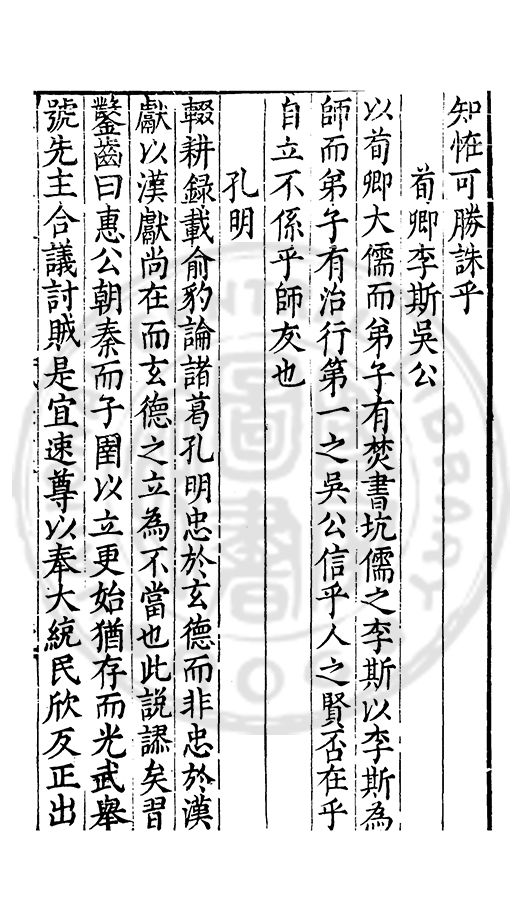 知恠可勝誅乎
荀卿李斯吳公
以荀卿大儒而弟子有焚書坑儒之李斯以李斯為
師而弟子有治行第一之吳公信乎人之賢否在乎
自立不係乎師友也
孔明
輟耕録載俞豹論諸葛孔明忠於玄德而非忠於漢
獻以漢獻尚在而玄德之立為不當也此說謬矣習
鑿齒曰惠公朝秦而子圉以立更始猶存而光武舉
號先主合議討賊是宜速尊以奉大統民欣反正出